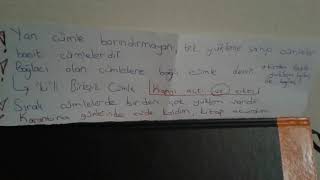 Yan cümle barındırmayan, tek yükleme sahip cümleler
basit cümlelerdir.
Bağlacı olan cümlelere bağlı cümle denir.
↳ "ki"li Birleşik Cümle Kapıyı açtı ve
Sıralı cümlelerde birden çok yüklem vardır.
Karantina günlerinde evde kaldım, kitap okudum.